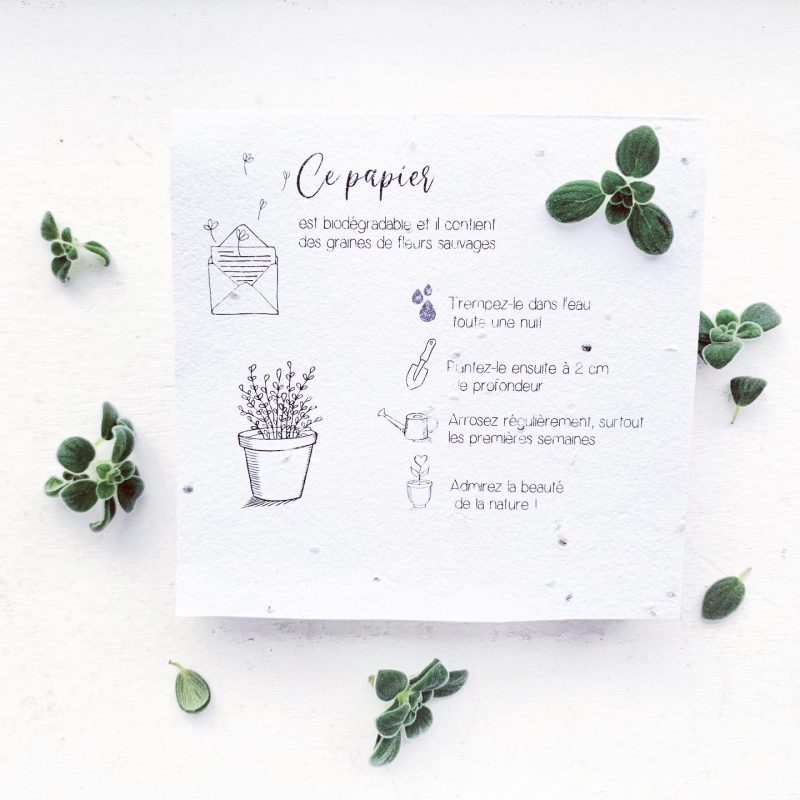 Ce papier
est biodégradable et il contient
des graines de fleurs sauvages
Trempez-le dans l'eau
toute une nuit
Plantez-le ensuite à 2 cm
de profondeur
Arrosez régulièrement, surtout
les premières semaines
Admirez la beauté
de la nature !